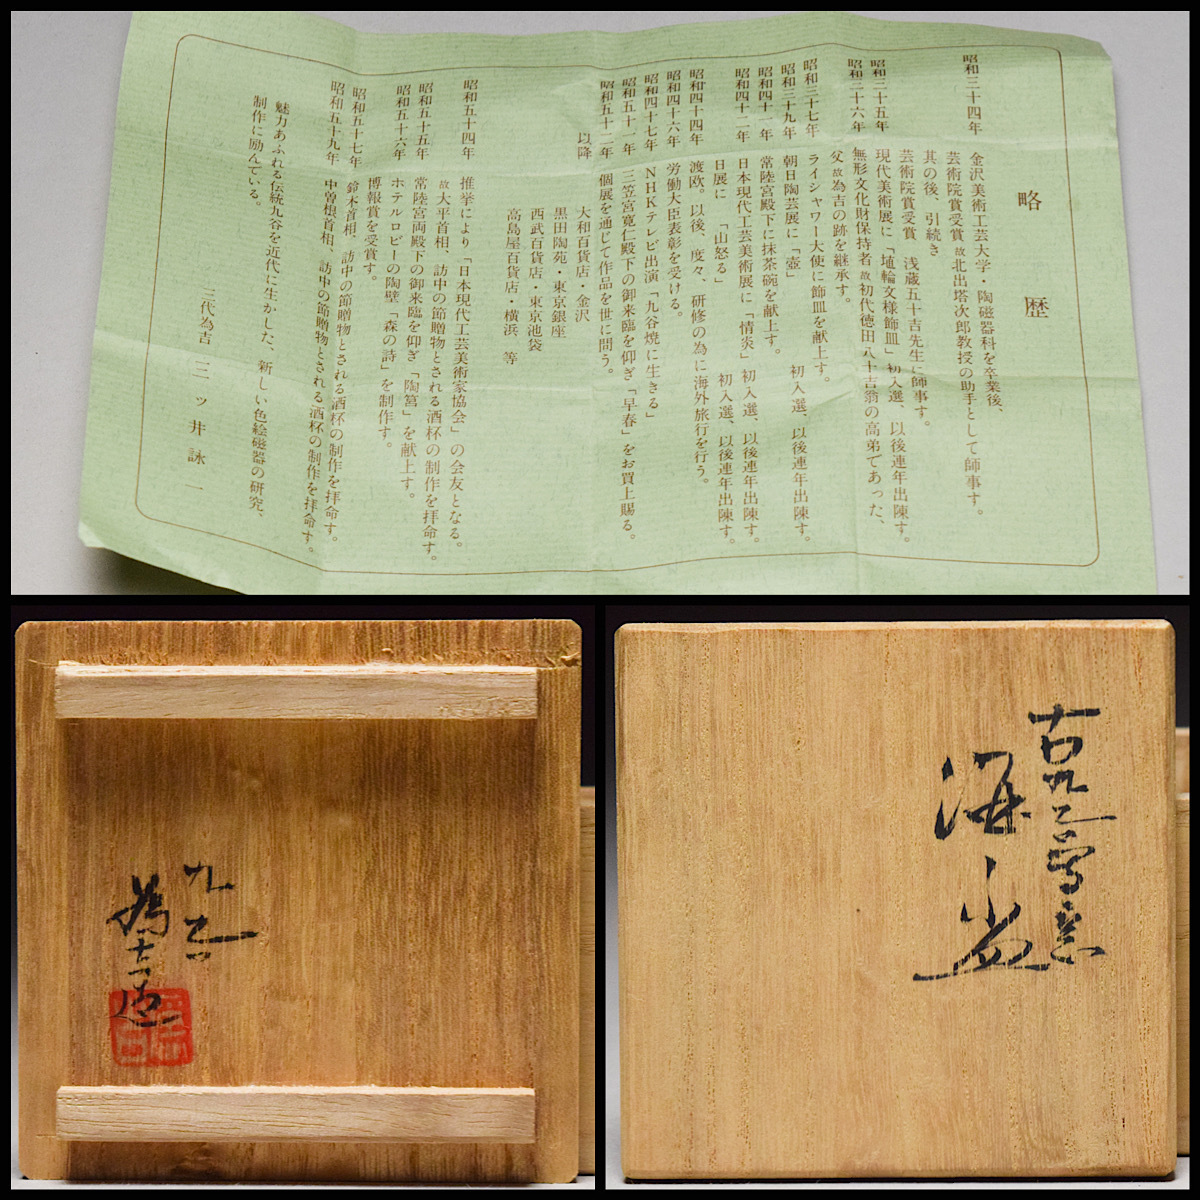 略歴
昭和三十四年 金沢美術工芸大学・陶磁器科を卒業後、
芸術院賞受賞故北出塔次郎教授の助手として師事す。
其の後、引続き
芸術院賞受賞 浅蔵五十吉先生に師事す。
昭和三十五年 現代美術展に「埴輪文様飾皿」初入選、以後連年出陳す。
昭和三十六年 無形文化財保持者故初代徳田八十吉翁の高弟であった、
父故為吉の跡を継承す。
昭和三十七年 ライシャワー大使に飾皿を献上す。
昭和三十九年 朝日陶芸展に「壺」 初入選、以後連年出陳す。
昭和四十一年 常陸宮殿下に抹茶碗を献上す。
昭和四十二年 日本現代工芸美術展に「情炎」初入選、以後連年出陳す。
日展に「山怒る」 初入選、以後連年出陳す。
昭和四十四年 渡欧。以後、度々、研修の為に海外旅行を行う。
昭和四十六年 労働大臣表彰を受ける。
昭和四十七年 NHKテレビ出演「九谷焼に生きる」
昭和五十一年 三笠宮寛仁殿下の御来臨を仰ぎ「早春」をお買上賜る。
昭和五十二年 個展を通じて作品を世に問う。
以降 大和百貨店・金沢
黒田陶苑・東京銀座
西武百貨店・東京池袋
高島屋百貨店・横浜 等
昭和五十四年 推挙により「日本現代工芸美術家協会」の会友となる。
故大平首相、訪中の節贈物とされる酒杯の制作を拝命す。
昭和五十五年 常陸宮両殿下の御来臨を仰ぎ「陶筥」を献上す。
昭和五十六年 ホテルロビーの陶壁「森の詩」を制作す。
博報賞を受賞す。
昭和五十七年 鈴木首相、訪中の節贈物とされる酒杯の制作を拝命す。
昭和五十九年 中曽根首相、訪中の節贈物とされる酒杯の制作を拝命す。
魅力あふれる伝統九谷を近代に生かした、新しい色絵磁器の研究、
制作に励んでいる。
三代為吉 三ッ井詠一
九谷
為吉造
古九谷写意
酒盃